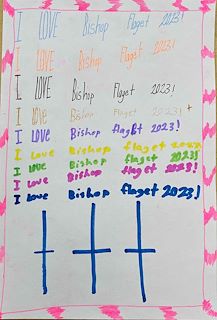 I LOVE Bishop Flaget 2023!
I LOVE Bishop Flaget 2023!
I LOVE Bishop Flaget 2023!
I LOVE Bishop Flaget 2023!
I LOVE Bishop flaget 2023!
I Love Bishop flaget 2023
I LOVE Bishop flaget 2023!
I Love Bishop flaget 2023!
I Love Bishop flaget 2023!